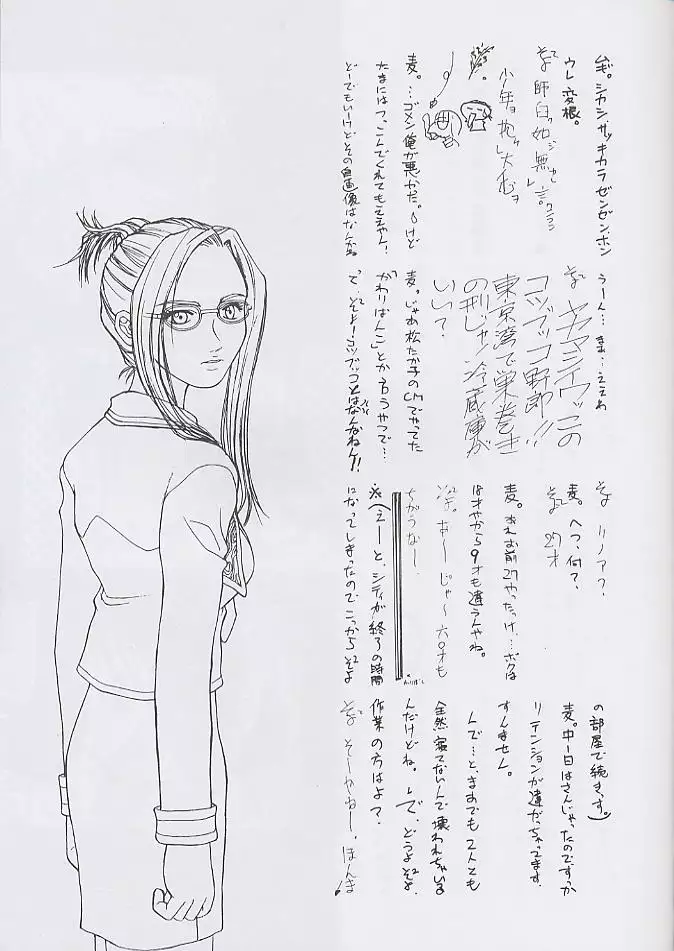 ムギ。シカシ、サッキカラゼンゼン、ホン
ウレ変根。
師曰“如
少年ヨ抱ケ大
麦。…ゴメン俺が悪かった。けど
たまにはつっこんでくれてもええやん！
どーでもいいけどその自画像はなんだ。
うーん…まぁ…ええわ
コップッコ野郎!!
東京湾で巻き
の刑じゃ！冷蔵庫が
いい？
麦。じゃあ松たか子のCMでやってた
「がわりばんこ」とか言うやつで…
で…そよ！コップッコとはなんやねん!!
そよ リノア？
麦。へっ、何？
そよ 27才
麦。お前27やったっけ…ボクは
18才やから9才も違うんやね。
そよ。あーじゃー六〇才も
ちがうなー。
※（えーと、シティが終了の時間
になってしまったのでこっからそよ
の部屋で続きっす。）
麦。中1日はさんじゃったのですか
リテンションが違がっちゃってます。
すんません。
んで…と、まあでも2人とも
全然寝てないんで壊われちゃいる
んだけどね。で、どうよそよ、
作業の方はよ？
そよ そーやねー。ほんま